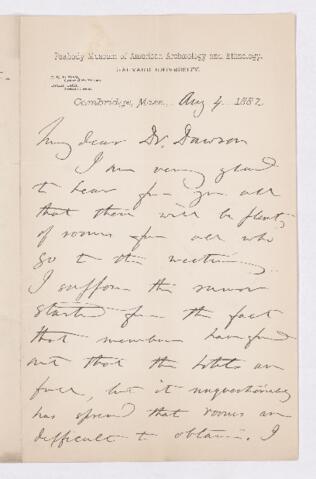 Peabody Museum of American Archaeology and Ethnology,
HARVARD UNIVERSITY.
Cambridge, Mass., Aug 4. 1882.
My dear Dr. Dawson
I am very glad
to hear from you all
that there will be plenty
of rooms for all who
go to the meeting.
I suppose the rumor
started from the fact
that members have found
out that the hotels are
full, but it unquestionably
has spread that rooms are
difficult to obtain. I